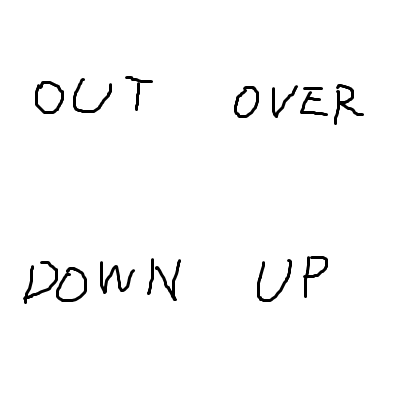 OUT OVER
DOWN UP